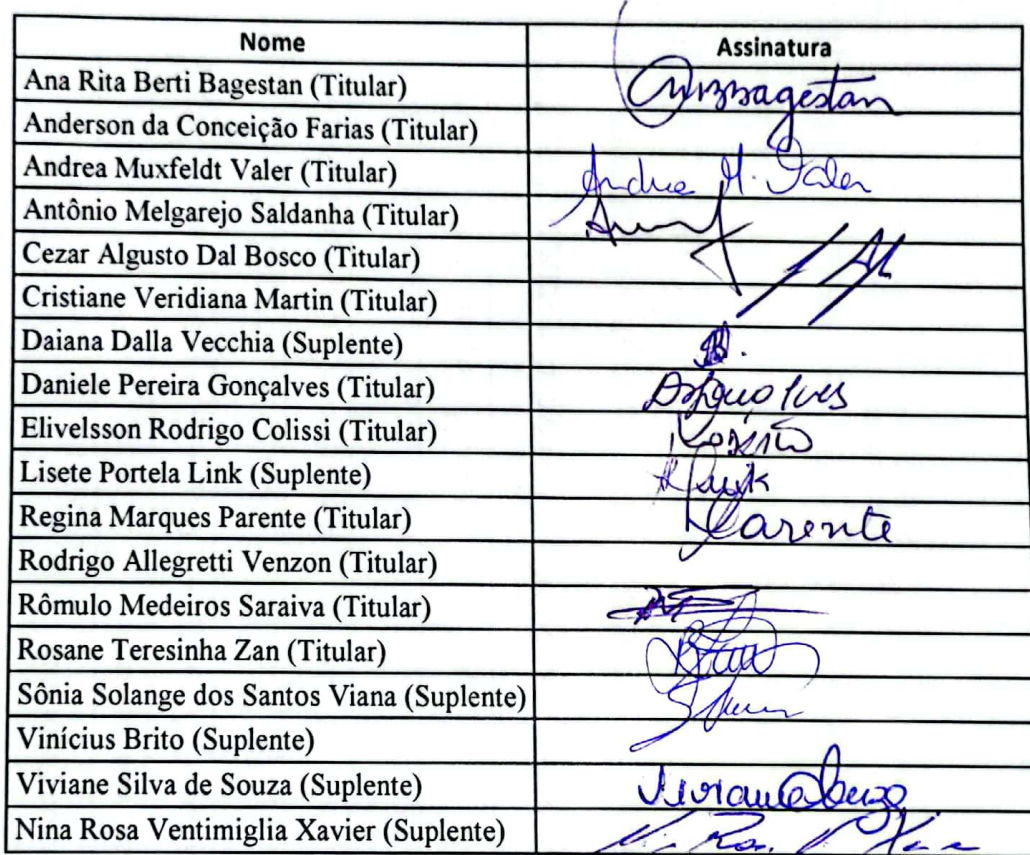 Nome Assinatura
Ana Rita Berti Bagestan (Titular)
Anderson da Conceição Farias (Titular)
Andrea Muxfeldt Valer (Titular) Andrea M. Valer
Antônio Melgarejo Saldanha (Titular)
Cezar Algusto Dal Bosco (Titular)
Cristiane Veridiana Martin (Titular)
Daiana Dalla Vecchia (Suplente)
Daniele Pereira Gonçalves (Titular)
Elivelsson Rodrigo Colissi (Titular)
Lisete Portela Link (Suplente)
Regina Marques Parente (Titular) Parente
Rodrigo Allegretti Venzon (Titular)
Rômulo Medeiros Saraiva (Titular)
Rosane Teresinha Zan (Titular)
Sônia Solange dos Santos Viana (Suplente)
Vinícius Brito (Suplente)
Viviane Silva de Souza (Suplente)
Nina Rosa Ventimiglia Xavier (Suplente)